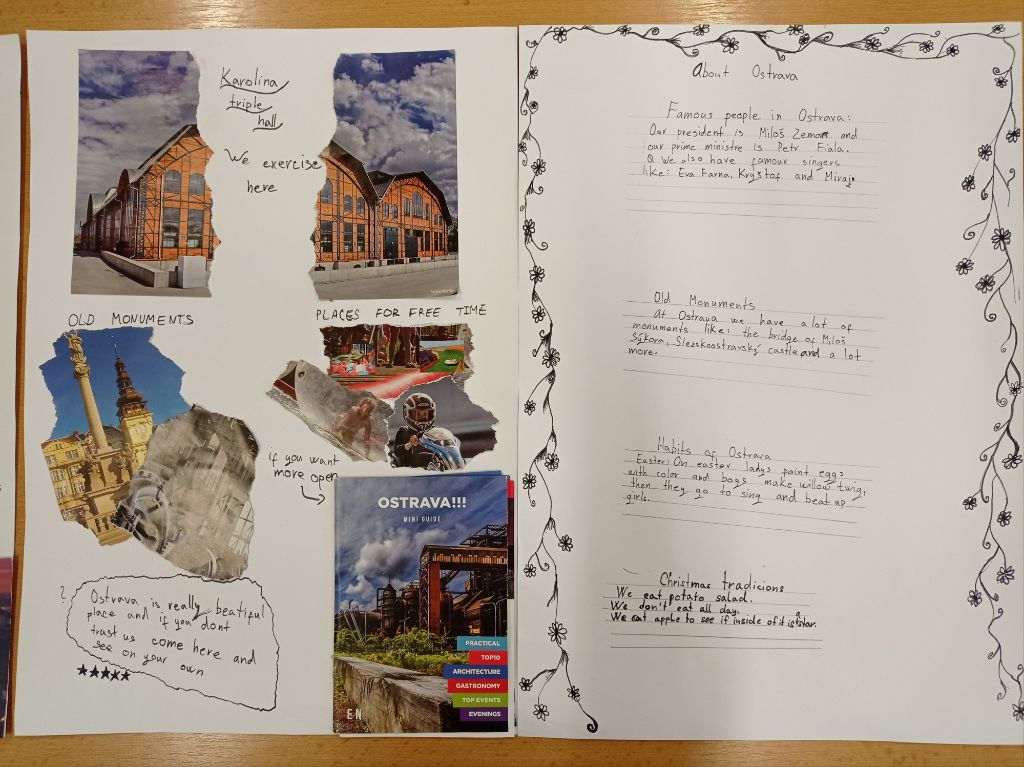 Karolina
triple
hall
We exercise
here
OLD MONUMENTS
PLACES FOR FREE TIME
if you want
more open
OSTRAVA!!!
MINI GUIDE
PRACTICAL
TOP10
ARCHITECTURE
GASTRONOMY
TOP EVENTS
EVENINGS
EN
?
Ostrava is really beatiful
place and if you dont
trust us come here and
see on your own
★★★★★
About Ostrava
Famous people in Ostrava:
Our president is Miloš Zeman and
our prime ministre is Petr Fiala.
We also have famour singers
like: Eva Farna, Kryštof and Mirai
Old Monuments
At Ostrava we have a lot of
monuments like: the bridge of Miloš
Sýkora, Slezskoostravský castle and a lot
more.
Habits of Ostrava
Easter: On easter ladys paint eggs
with color and boys make willow twig,
then they go to sing and beat up
girls.
Christmas tradicions
We eat potato salad.
We don't eat all day.
We eat apple to see if inside of it is a star.